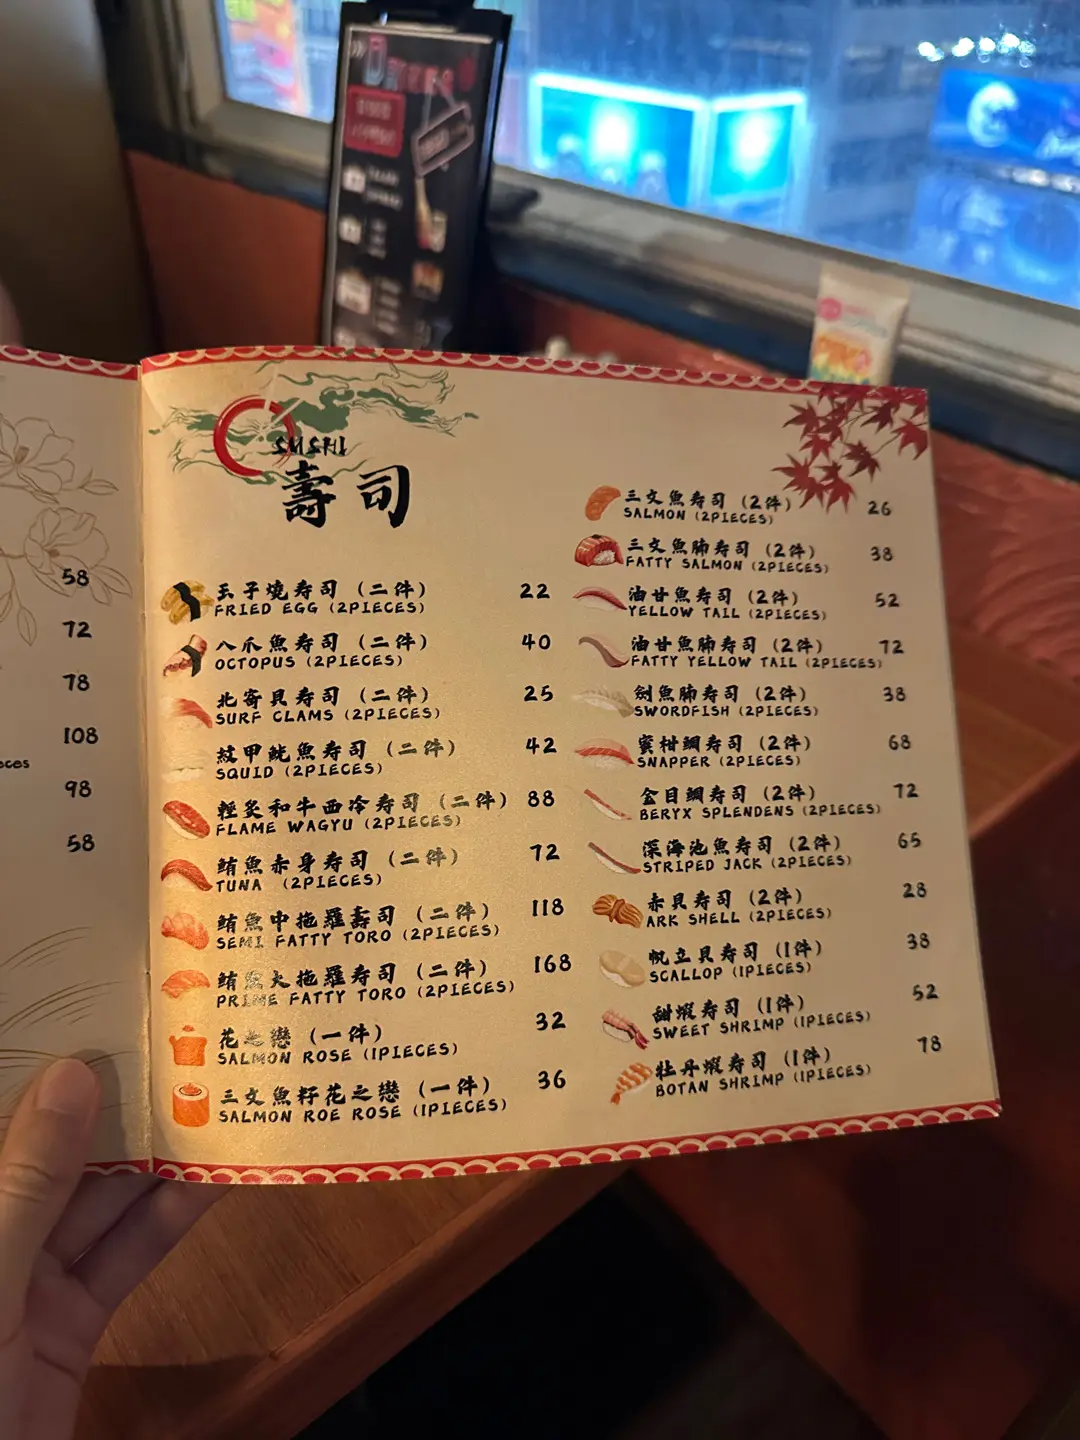 58
72
78
108
eces
98
58
SUSHI
壽司
玉子燒寿司 (二件) 22
FRIED EGG (2PIECES)
八爪魚寿司 (二件) 40
OCTOPUS (2PIECES)
北寄貝寿司 (二件) 25
SURF CLAMS (2PIECES)
紋甲魷魚寿司 (二件) 42
SQUID (2PIECES)
輕炙和牛西冷寿司 (二件) 88
FLAME WAGYU (2PIECES)
鮪魚赤身寿司 (二件) 72
TUNA (2PIECES)
鮪魚中拖羅壽司 (二件) 118
SEMI FATTY TORO (2PIECES)
鮪魚大拖羅寿司 (二件) 168
PRIME FATTY TORO (2PIECES)
花之戀 (一件) 32
SALMON ROSE (1PIECES)
三文魚籽花之戀 (一件) 36
SALMON ROE ROSE (1PIECES)
三文魚寿司 (2件) 26
SALMON (2PIECES)
三文魚腩寿司 (2件) 38
FATTY SALMON (2PIECES)
油甘魚寿司 (2件) 52
YELLOW TAIL (2PIECES)
油甘魚腩寿司 (2件) 72
FATTY YELLOW TAIL (2PIECES)
劍魚腩寿司 (2件) 38
SWORDFISH (2PIECES)
蜜柑鯛寿司 (2件) 68
SNAPPER (2PIECES)
金目鯛寿司 (2件) 72
BERYX SPLENDENS (2PIECES)
深海池魚寿司 (2件) 65
STRIPED JACK (2PIECES)
赤貝寿司 (2件) 28
ARK SHELL (2PIECES)
帆立貝寿司 (1件) 38
SCALLOP (1PIECES)
甜蝦寿司 (1件) 52
SWEET SHRIMP (1PIECES)
牡丹蝦寿司 (1件) 78
BOTAN SHRIMP (1PIECES)